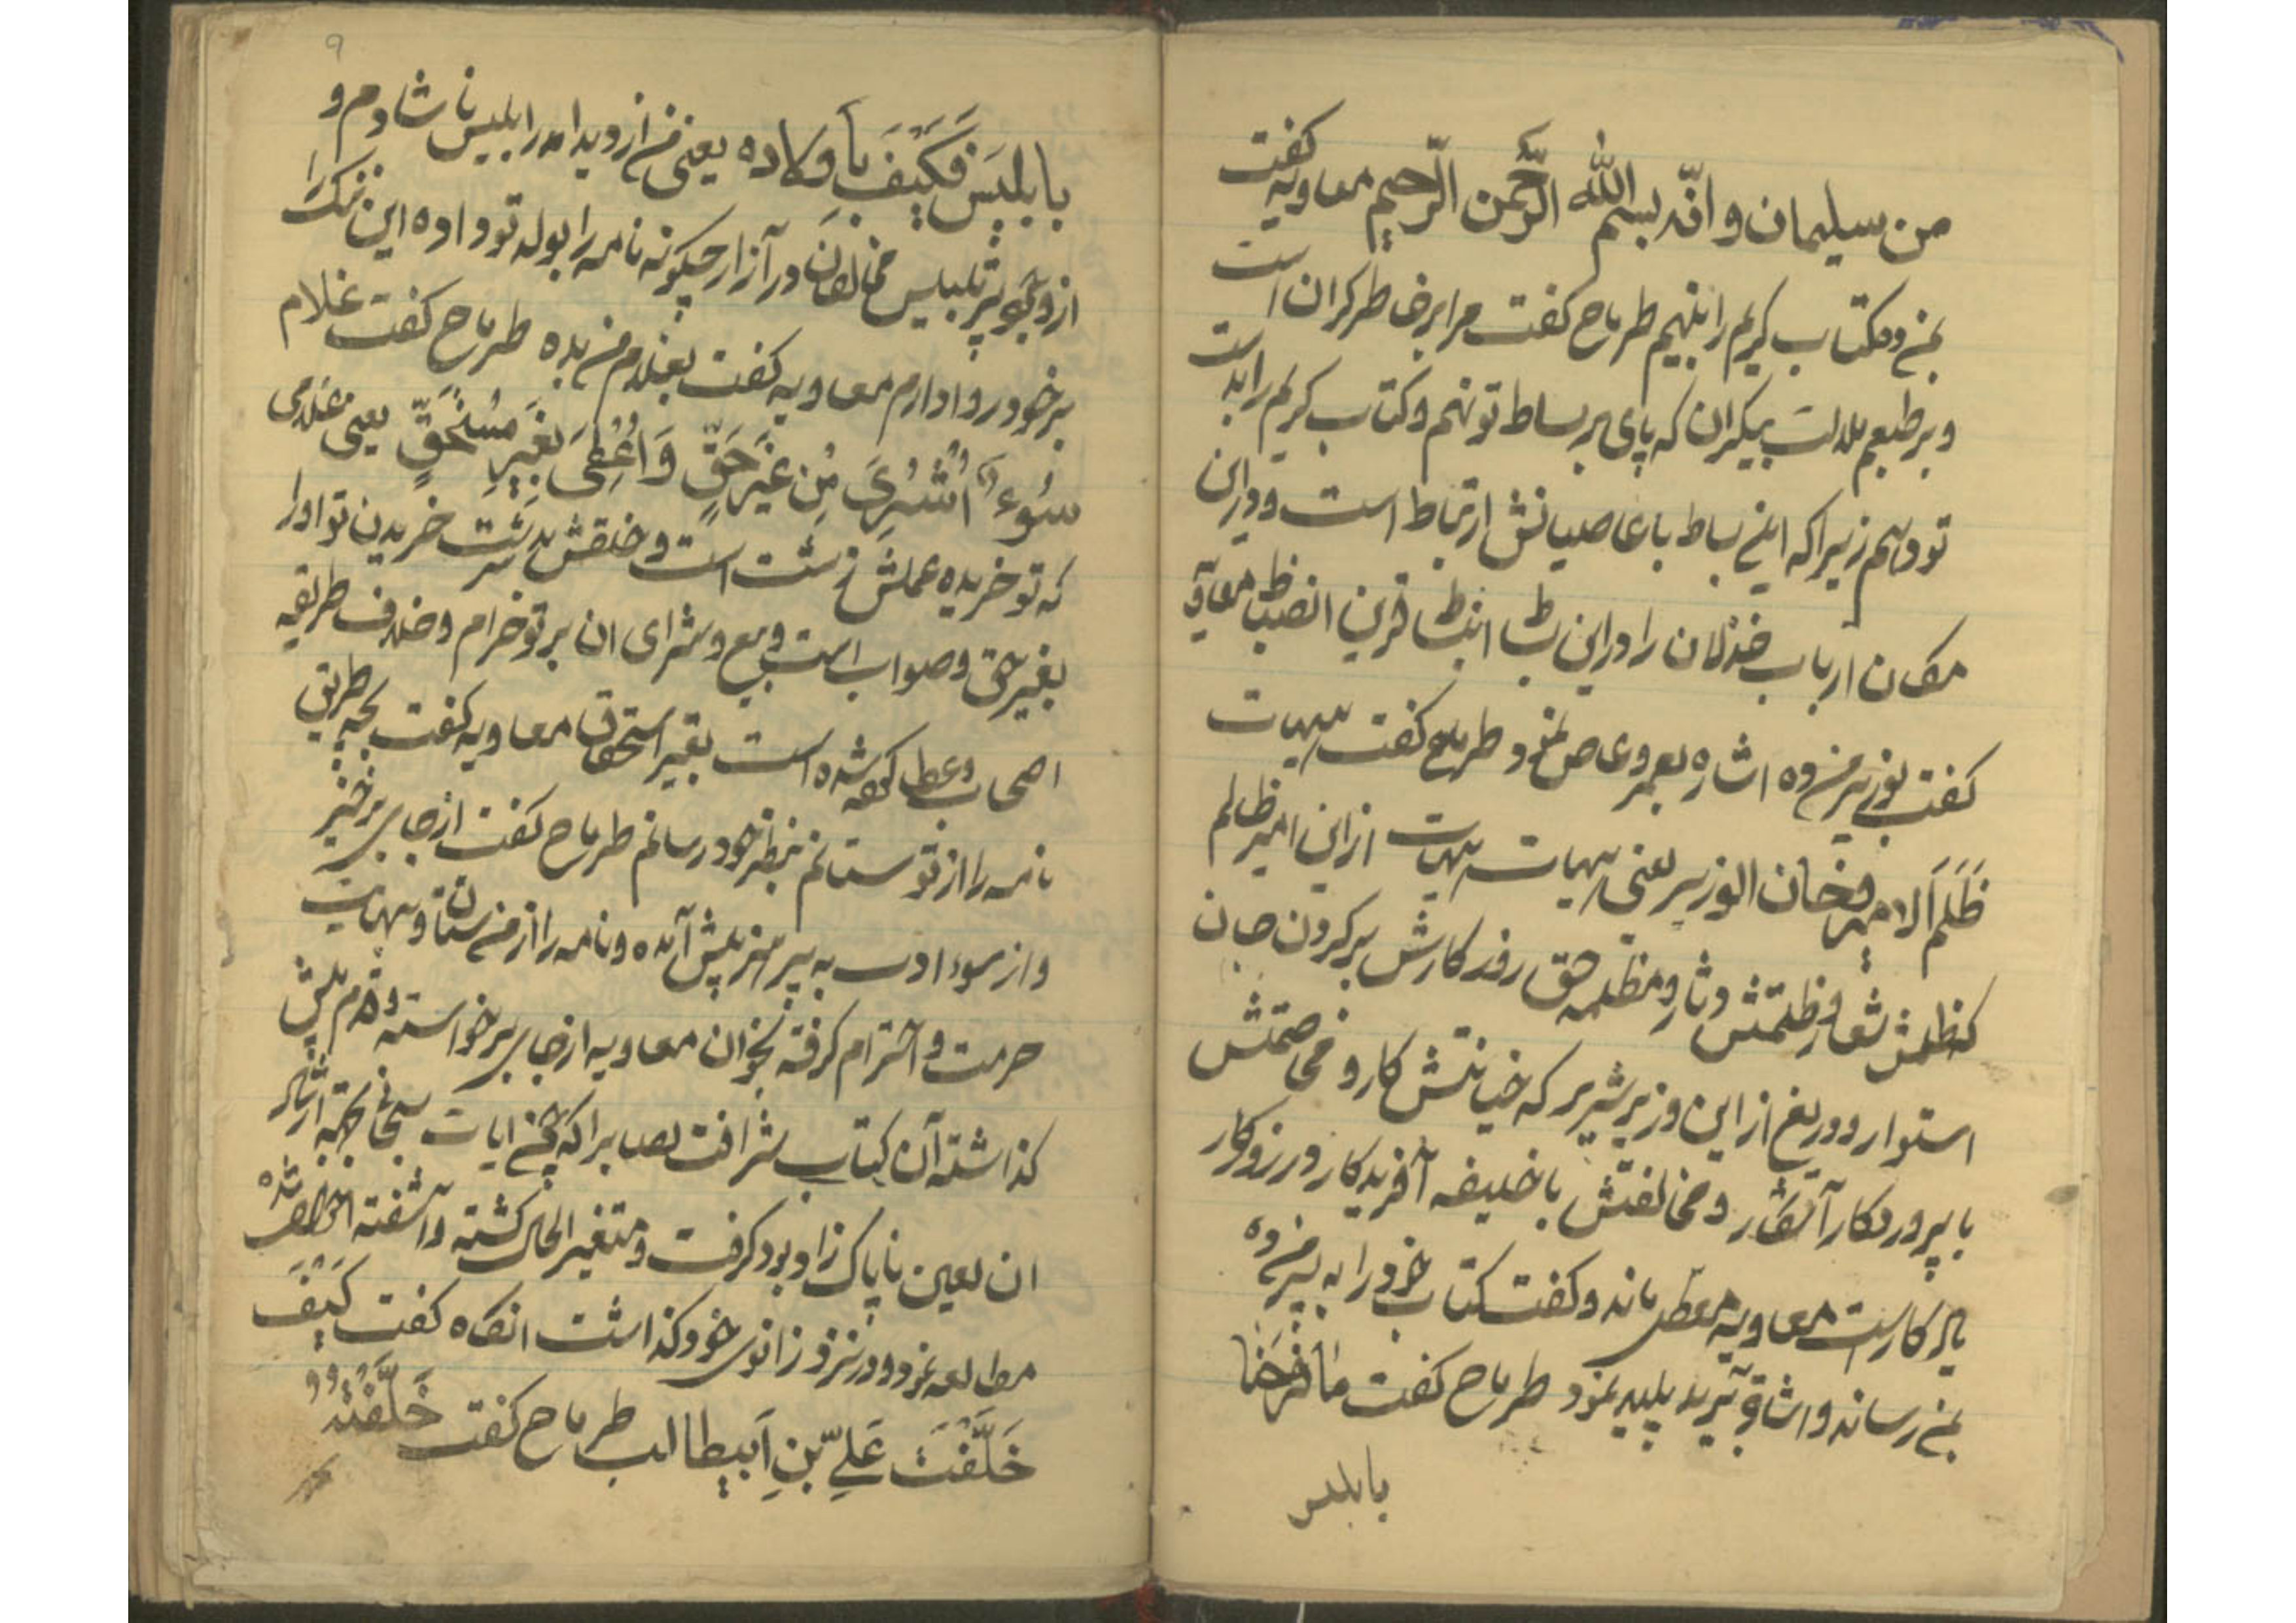 من سلیمان و انّه بسم الله الرّحمن الرّحیم معاویه کفت
بمن ده کتاب کریم را بنهیم طرماح کفت مرا برخاطر کران است
و بر طبعم ملالت بیکران که پای بر بساط تو نهم و کتاب کریم را بدست
تو دهم زیرا که این بساط با عاصیانش ارتباط است و در این
مکان ارباب خذلان را در این بساط قرین انضباط معاویه
کفت بوزیر من ده اشاره بعمرو عاص نمود طرماح کفت هیهات
ظَلَمَ اَلامیر وخان الوزیر یعنی هیهات هیهات از این امیر ظالم
که ظلمش شعار و ظلمتش دثار و مظلمه حق روز کارش بر کردن جان
استوار و دریغ از این وزیر شریر که خیانتش کار و مخاصمتش
با پروردکار آشکار و مخالفتش با خلیفه آفریدکار در روزکار
کار است معاویه معطل ماند و کفت کتاب خود را به پسر من ده
بمن رساند و اشاره یزید پلید نمود طرماح کفت ما فرحنا
بابلیس
۹
بابلیس فَکَیفَ بأوکاده یعنی من از دیدار ابلیس ناشادم و
از تلبیس مخالفان در آزار چکونه نامه را بوله تو داده این ننک را
بر خود روا دارم معاویه کفت بغلام من بده طرماح کفت غلام
سُوء اُشتُرِیَ مِن غَیرِ حَقٍّ وَاُعْطِیَ بِغَیرِ مُستَحَقٍّ یعنی غلامی
که تو خریده عملش زشت است و خلقش بد سرشت خریدن تو او را
بغیر حق و صواب است و بیع و شرای ان بر تو حرام و خلاف طریقه
اصحاب و عطا کرده شده است بغیر استحقاق معاویه کفت بچه طریق
نامه را از تو ستانم بنظر خود رسانم طرماح کفت از جای برخیز
و از سوء ادب به پرهیز پیش آمده و نامه را از من ستان و بنهایت
حرمت و احترام کرفته بخوان معاویه از جای برخواسته و قدم پیش
کذاشته آن کتاب شرافت نصاب را که
ان لعین ناپاک زاده بود کرفت و متغیر الحال کشته و آشفته
مطالعه نمود و در نزد زانوی خود کذاشت انکاه کفت کَیفَ
خَلَّفْتَ عَلِیّ بنِ اَبیطالب طرماح کفت خَلَّفْتُهُ